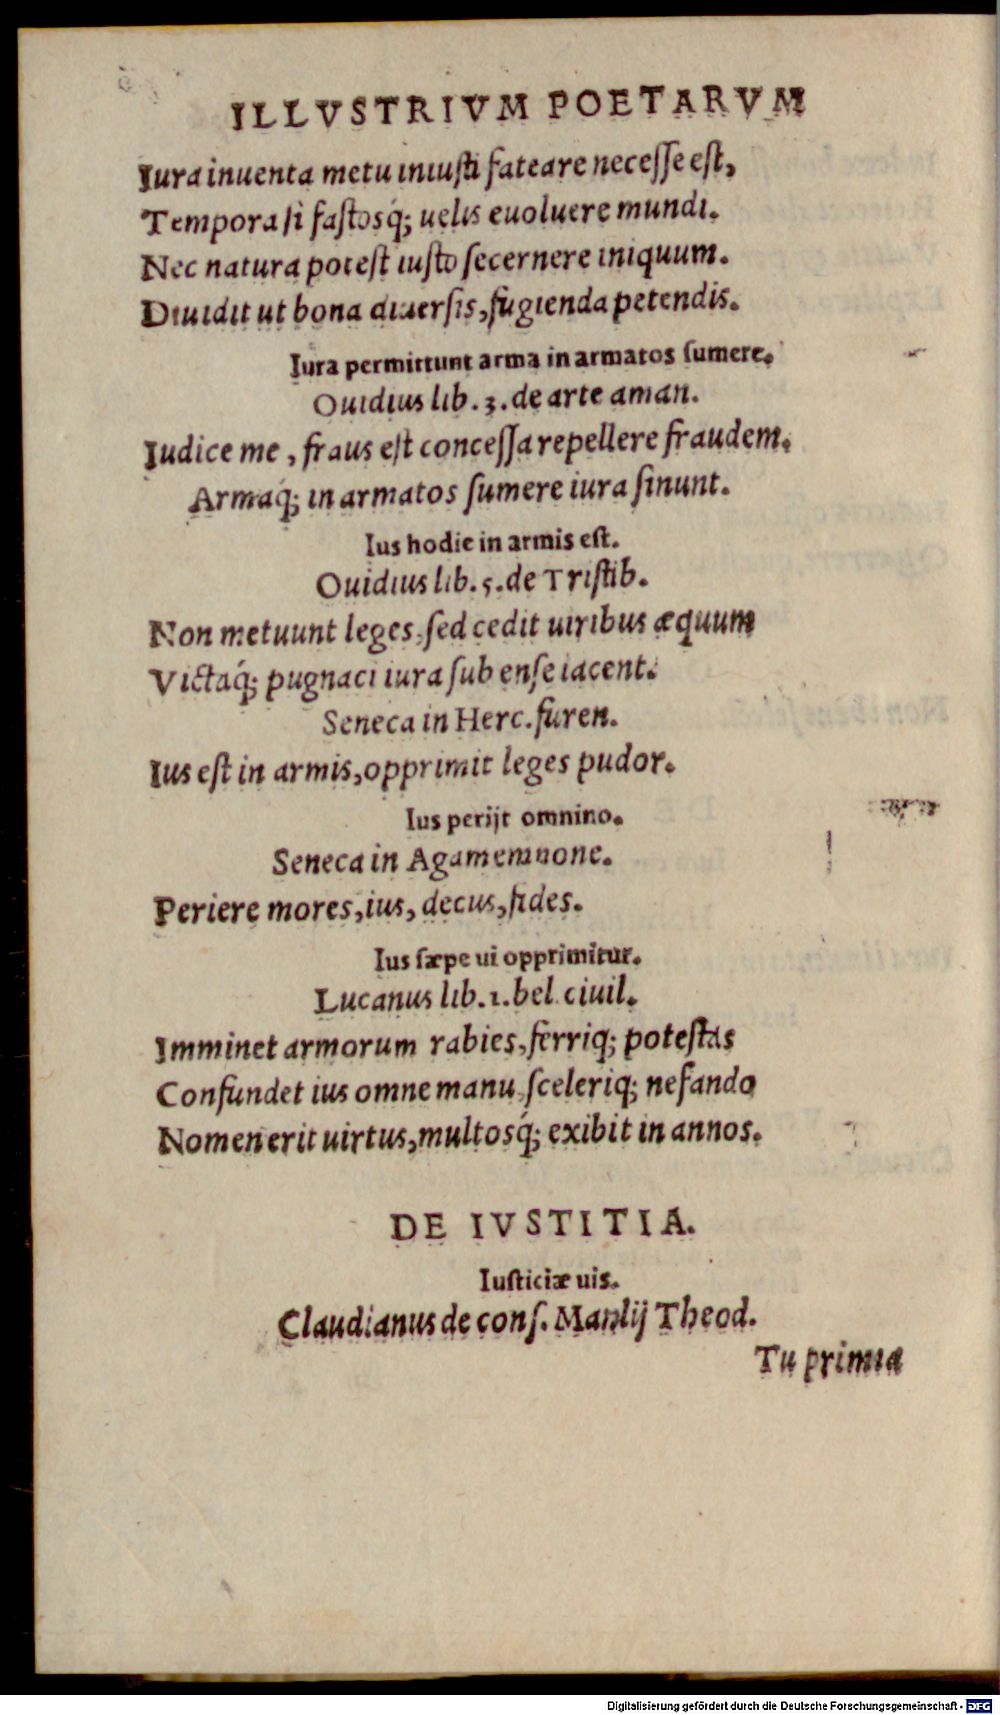 ILLVSTRIVM POETARVM
Iura inuenta metu iniusti fateare necesse est,
Tempora si fastosq́; uelis euoluere mundi.
Nec natura potest iusto secernere iniquum.
Diuidit ut bona diuersis, fugienda petendis.
Iura permittunt arma in armatos sumere.
Ouidius lib. 3. de arte aman.
Iudice me, fraus est concessa repellere fraudem.
Armaq́; in armatos sumere iura sinunt.
Ius hodie in armis est.
Ouidius lib. 5. de Tristib.
Non metuunt leges, sed cedit uiribus æquum
Victaq́; pugnaci iura sub ense iacent.
Seneca in Herc. furen.
Ius est in armis, opprimit leges pudor.
Ius perijt omnino.
Seneca in Agamemnone.
Periere mores, ius, decus, fides.
Ius sæpe ui opprimitur.
Lucanus lib. 1. bel. ciuil.
Imminet armorum rabies, ferriq; potestas
Confundet ius omne manu, sceleriq; nefando
Nomen erit uirtus, multosq́; exibit in annos.
DE IVSTITIA.
Iusticiæ uis.
Claudianus de cons. Manlij Theod.
Tu prima
Digitalisierung gefördert durch die Deutsche Forschungsgemeinschaft - DFG